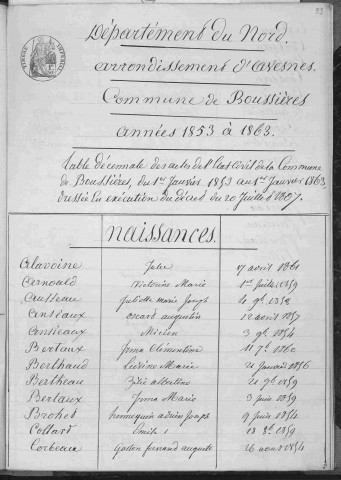 Département du Nord.
arrondissement d'Avesnes.
Commune de Boussières
années 1853 à 1863.
Table décennale des actes de l'Etat Civil de la Commune
de Boussières, du 1er Janvier 1853 au 1er Janvier 1863,
dressée en exécution du décret du 20 Juillet 1807.
naissances.
Alavoine Jules 17 avril 1861
Arnould Victorine Marie 1er Juillet 1859
Juliette Marie Joseph 4 9e 1858
Anseaux oscard augustin 12 avril 1857
Ansieaux 3 9e 1854
Bertaux Irma Clémentine 11 7e 1860
Berthaud Marie 21 Janvier 1856
Bertheau Zélie albertine 21 9e 1859
Bertaux Irma Marie 3 Juin 1859
Brohet 9 Juin 1854
Collart Emile 13 8e 1859
Corbeaux Gaston fernand auguste 26 aout 1854